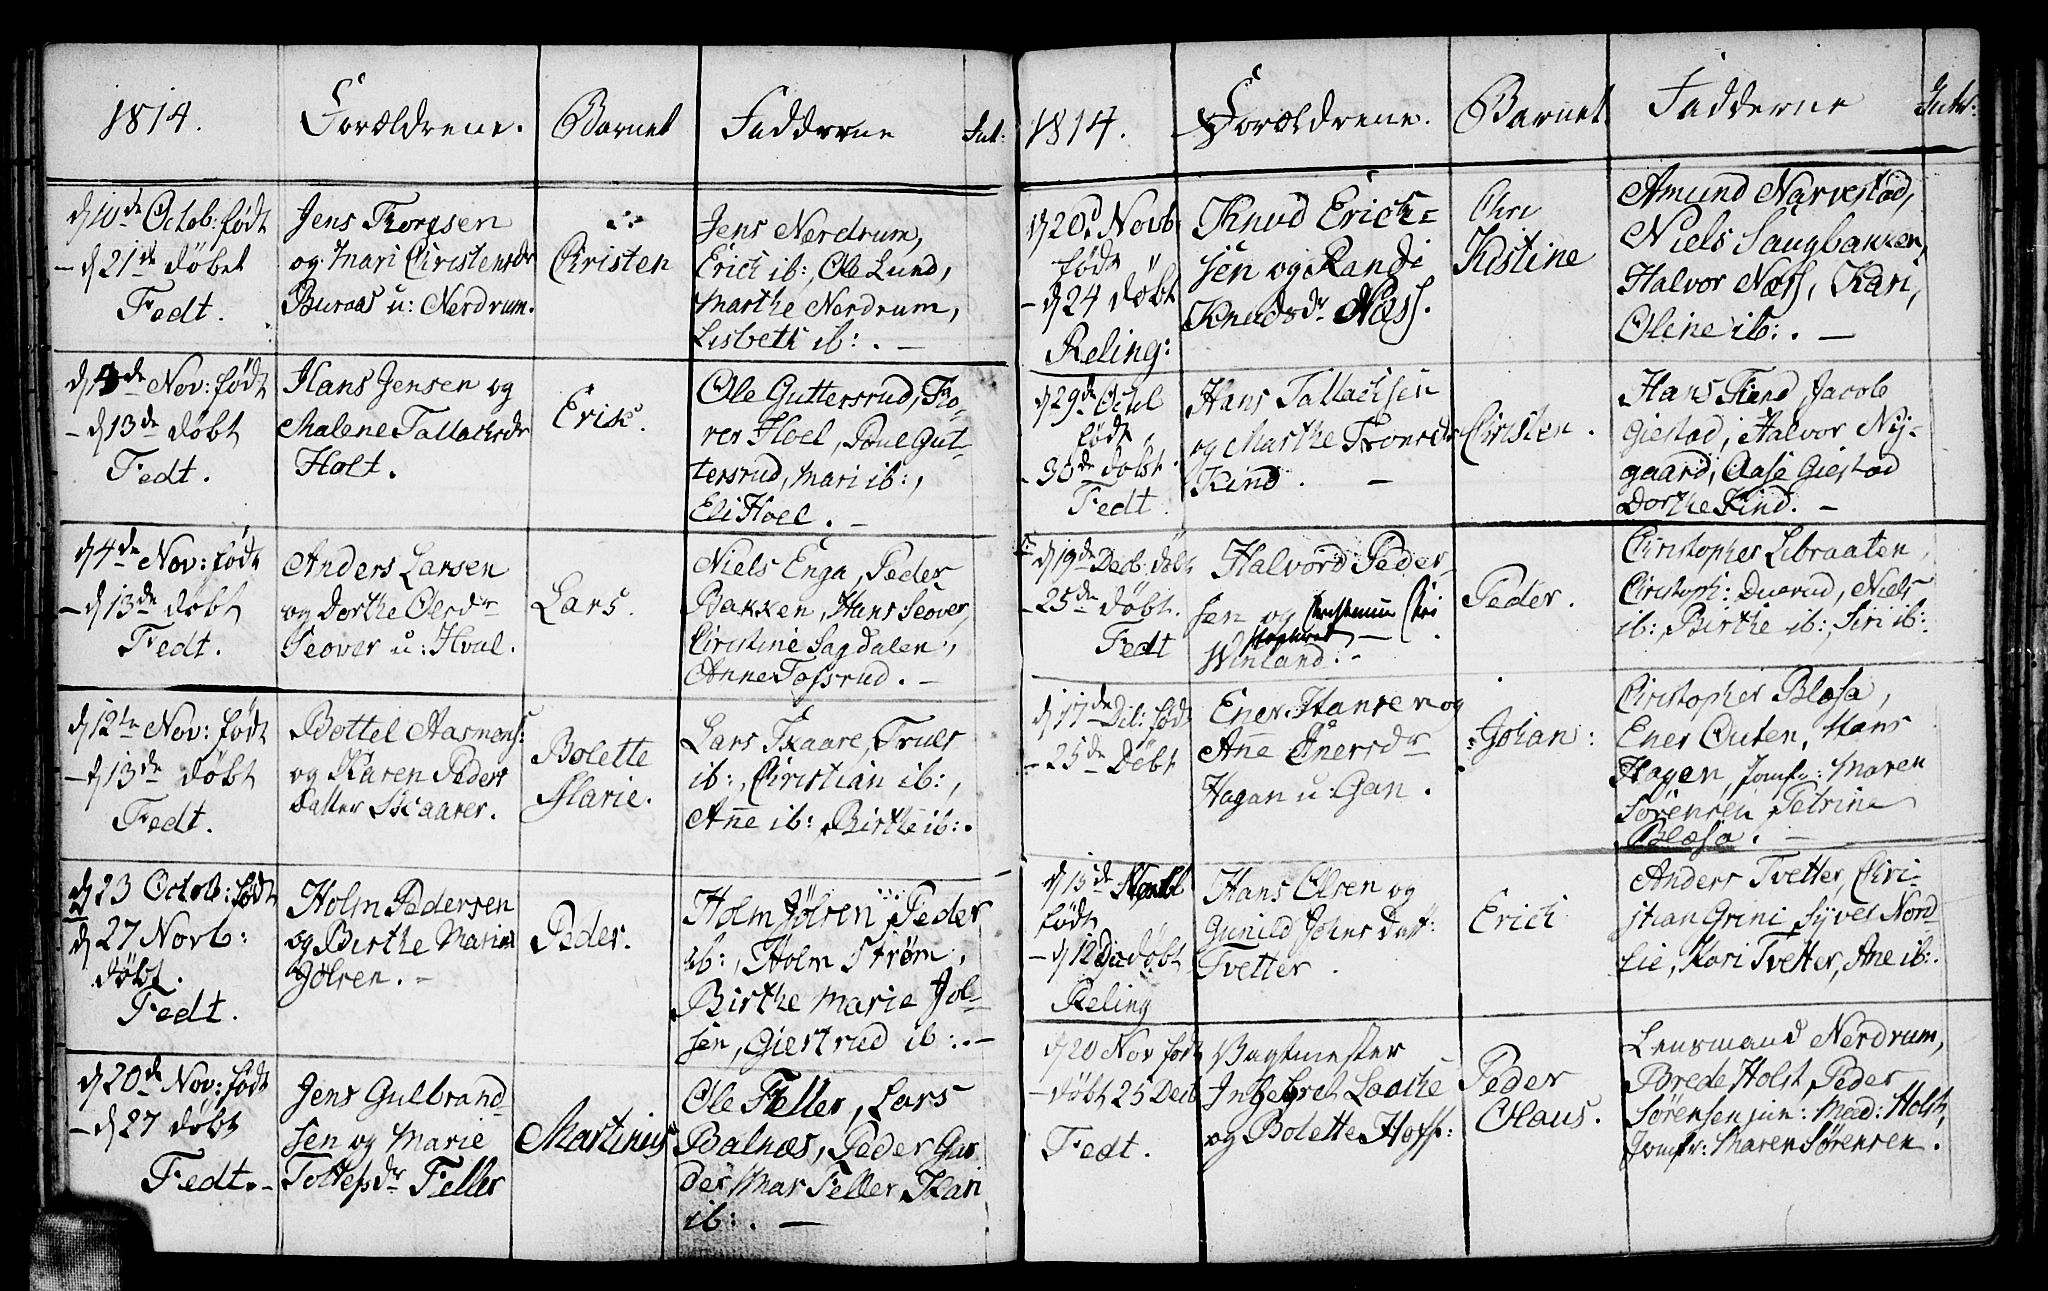 1814.
Forældrene.
Barnet
Fadderne
Int:
d 10de Octob: født
– d 21de døbt
Fedt.
Jens Thorgsen
og Mari Christensdr
Buraas u: Nerdrum.
Christen
Jens Nærdrum,
Erich ib:, Ole Lund,
Marthe Nordrum,
Lisbeth ib:. –
de Nov: født
– d 13de døbt
Fedt.
Hans Jensen og
Malene Tallachsdr
Holt.
Erik.
Ole Guttersrud, Tho-
rer Hoel, Poul Gut-
tersrud, Mari ib:,
Eli Hoel. –
d 4de Nov: født
– d 13de døbt
Fedt.
Anders Larsen
og Dorthe Olsdr
Seover u: Hval.
Lars.
Niels Enga, Peder
Bakken, Hans Seover,
Christine Sagdalen,
Anne Tofsrud. –
d 12te Nov: født
– d 13de døbt
Fedt.
Bottel Aasmons:
og Karen Peders
datter Skaarer.
Bolette
Marie.
Lars Skaare, Truls
ib:, Christian ib:,
Anne ib: Birthe ib:.
d 23 Octob: født
d 27 Novb:
døbt.
Fedt.
Holm Pedersen
og Birthe Marie
Jølsen. –
Peder.
Holm Jølsen, Peder
ib:, Holm Strøm,
Birthe Marie Jøl-
sen, Giertrud ib:. –
d 20de Nov: født
– d 27 døbt
Fedt. –
Jens Gulbrand-
sen og Marie
Feller
Martinus
Ole Feller, Lars
Balnæs, Peder Gar
der, Mar Feller, Kari
ib:. –
1814.
Forældrene.
Barnet
Fadderne
Intr:
d 20d Novb
født
– d 24 døbt
Reling:
Knud Erich=
sen og Randi
Knudsdr Næss.
Chri
Kistine
Amund Narvestad,
Niels Saugbakken,
Halvor Næss, Kari,
Oline ib:. –
d 29de Octob
født
30de døbt.
Fedt
Hans Tallachsen
og Marthe Thoresdr
Kind. –
Christen.
Hans Kind, Jacob
Giestad, Halvor Ny-
gaard, Aase Giestad
Dorthe Kind. –
d 19de Decb: døbt
– 25de døbt.
Fedt
Halvord Peder
sen og
Winland. –
Peder.
Christopher Libraaten,
Christoph: Duerud, Niels
ib:, Birthe ib:, Siri ib:
d 17de født
– 25de Døbt
Ener Hansen og
Anne Enersdr
Hagan u: Gan.
Johan:
Christopher Blæsa,
Ener Outen, Hans
Hagen, Jomfr: Maren
Sørensen, Petrine
Blæsa. –
d 13de
født
– d 12 døbt
Reling
Hans Olsen og
Gunild Johns Datt:
Tvetter.
Erich
Anders Tvetter, Chri-
stian Grini, Syver Nord
lie, Kari Tvetter, Ane ib:.
d 20 Nov født
– døbt 25 Decb
Fedt.
Vagtmester
Ingebret Laache
og Bolette Hoff:
Peder
Claus.
Lensmand Nerdrum,
Brede Holst, Peder
Sørensen jun: Mad: Holst,
Jomfr: Maren Sørensen.